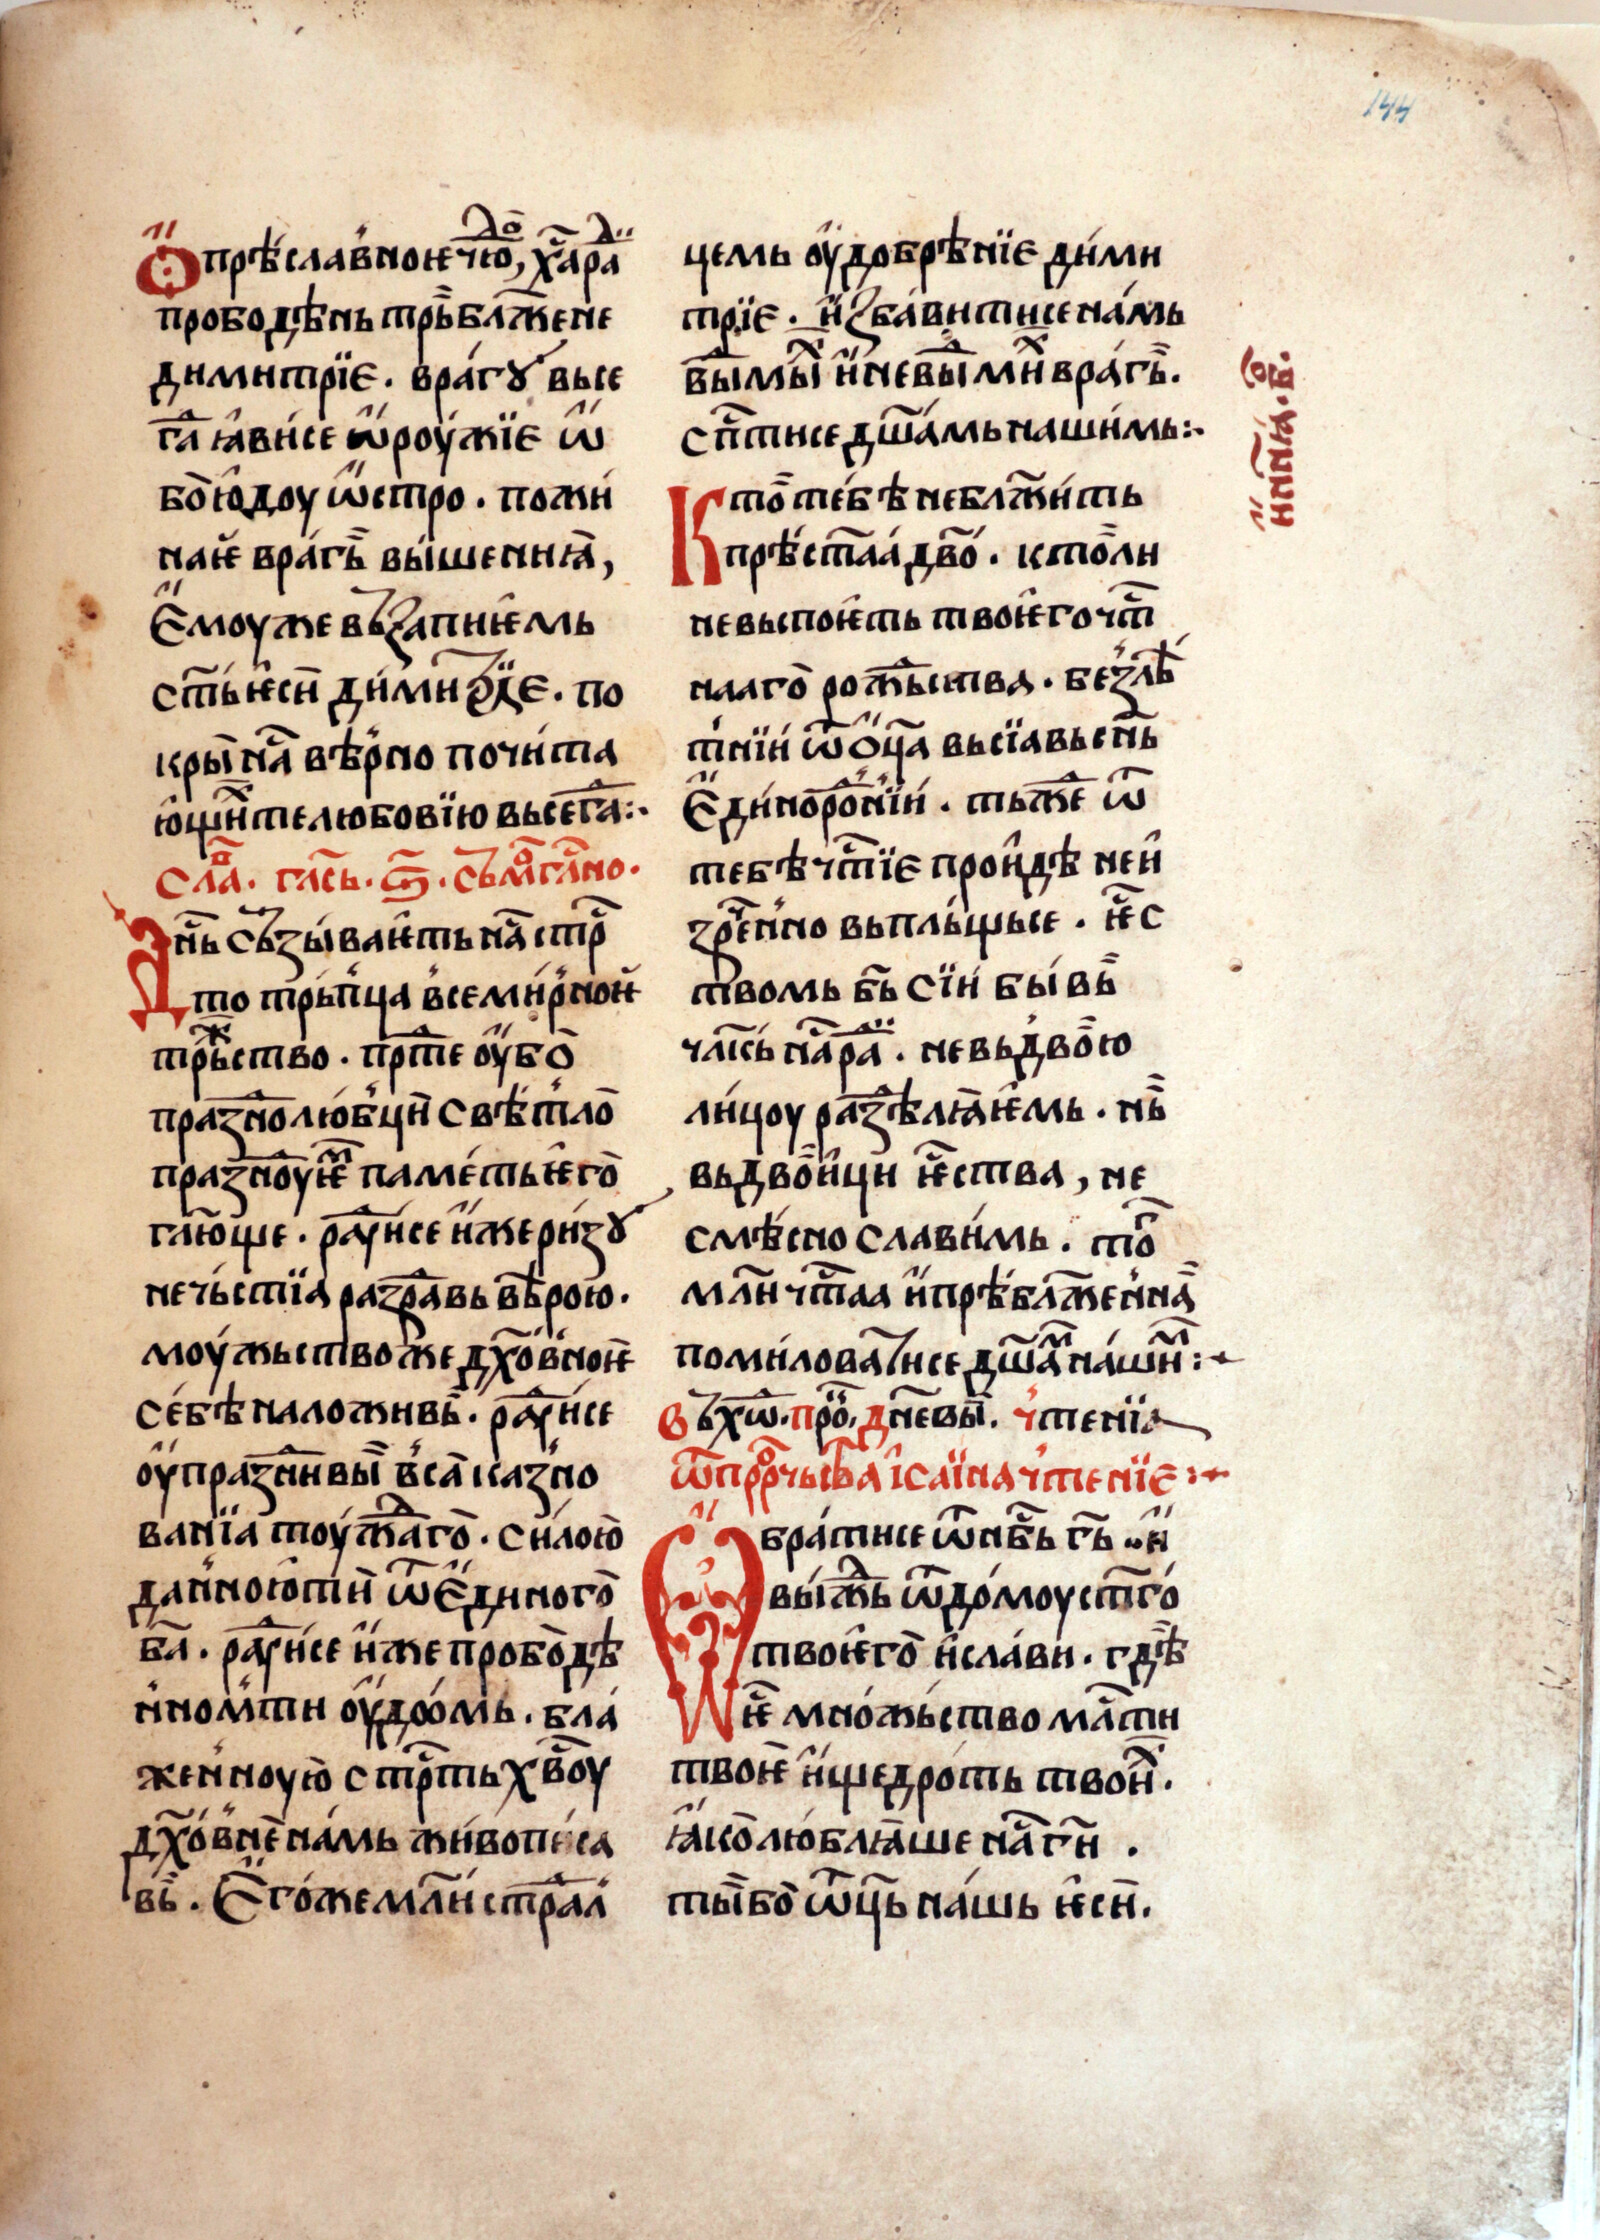 144
Ѽ прѣ́славноѥ чю̑до, х҃а ра́дї
пробѡдѣнь трь̏бл҃жене
димитрїе. вра́гꙋ вьсе
гд҃а ꙗ҆ви́се ѡ҆роу́жїе ѡ҆
бою́доу ѡ҆стро. пожи
наѥ҆ вра́гь̏ вы́шенїа,
е҆моуже вьꙁапнїѥмь
ст҃ь ѥси̏ ди́митрїе. по
кры́и на̑с вѣ́рно почи́та
ю҆щи́х те любовїю вьсегда̑:·
Сла̑в. гла̑сь. ѕ҃. съ́мѡгла̑сно.
Дн҃ь сьꙁы́ваѥ҆ть на̑с стра̑
то трь́пца всеми́рноѥ
трь̑жьство. прїд̑ѣте оу҆бо̏
праꙁно̑любци̏ свѣ́тло̏
праꙁноу̑ѥм паме́ть ѥго̏
гл҃юще. ра̑дꙋисе и҆же ри́ꙁꙋ
нечь́стїа раꙁра̑вь вѣ̑рою.
моу́жьство же дх҃о́вноѥ
се́бѣ наложивь̏. ра̑дꙋисе
оу҆праꙁни̑вы̏и вса̏ каꙁно
ванїа тоу́ждаго̏. си́лою
да́нною ти̏ ѿ е҆диного̏
б҃а. ра̑дꙋисе и҆же пробо̏дѣ
нноми ти оу҆дѡ́мь. бла́
же́нноую стрт҃ь хв҃оу
дх҃о́внѣ на́мь живопи́са
вь̏. Е҆го́же мл҃и страда̑л
цемь оу҆добрѣнїе ди́ми
трїе. и҆ꙁба́витисе на́мь
ви̑димы́х и҆ неви̑дими́х вра́гь̏.
сп҃тисе дш҃а́мь наши́мь:·
Кто̏ те́бѣ не бл҃жи́ть
прѣ́ст҃аа дв҃о. кто̏ ли
не вьспоѥ҆ть твоѥ҆го чт҃
нааго̏ рож̑ьства. беꙁлѣ́
тнїи ѿ ѻ҆ц҃а вьсїавь сн҃ь
Е҆ди́норо̑днїи. тьж̑де ѿ
тебѣ чт҃їе прои҆де неи҆
ꙁре́нно вьпль́щьсе. ѥс҃
твомь б҃ь сїи бы́вь̏
чл҃кь на̑с ра̑ди. не вь дво́ю
ли́цоу раꙁдѣлїаѥмь. нь̏
вь дво́ици ѥс҃тва, не
смѣ́сно слави́мь. того̑
мл҃и чт҃аа и҆ прѣ́бл҃же́нна̏а
поми́ловатисе дш҃а̑м на́ши̑м:·
и҆ нн҃ꙗ. бо̑г.
Въхѡ̑. про̑к, дн҃евы̏и. чте́нїа
ѿ про̑рчьства і҆саїина чте́нїе:·
Ѡ҆брати́се ѿ нб҃ь г҃ь и҆
ви́ждь ѿ до́моу ст҃го
твоѥ҆го̏ и҆ сла́ви. гдѣ̏
ѥс҃ мно́жьство мл҃сти
твоѥ и҆ щедро́ть твои́х.
ꙗ҆ко̏ люблꙗ́ше на̑с г҃и.
ты̏ бо̏ ѿц҃ь на́шь ѥси̏.